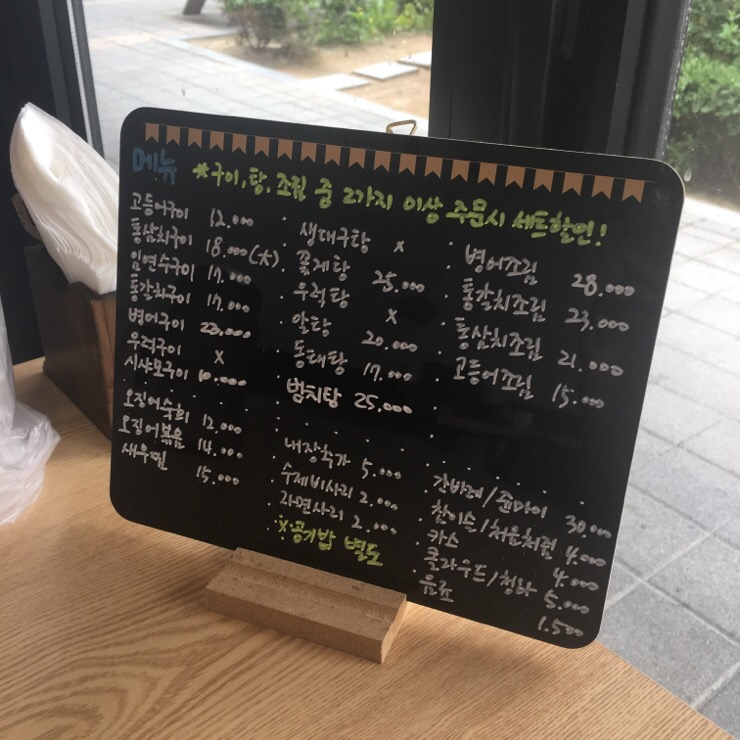 메뉴 *구이, 탕, 조림 중 2가지 이상 주문시 세트할인!
고등어구이 12.000
통삼치구이 18.000(大)
임연수구이 17.000
통갈치구이 17.000
병어구이 23.000
우럭구이 x
시샤모구이 10.000
오징어숙회 12.000
오징어볶음 14.000
새우찜 15.000
생대구탕 x
꽃게탕 25.000
우럭탕 x
알탕 20.000
동태탕 17.000
범치탕 25.000
내장추가 5.000
수제비사리 2.000
라면사리 2.000
※공기밥 별도
병어조림 28.000
통갈치조림 23.000
통삼치조림 21.000
고등어조림 15.000
간바레/준마이 30.000
참이슬/처음처럼 4.000
카스 4.000
클라우드/청하 5.000
음료 1.500